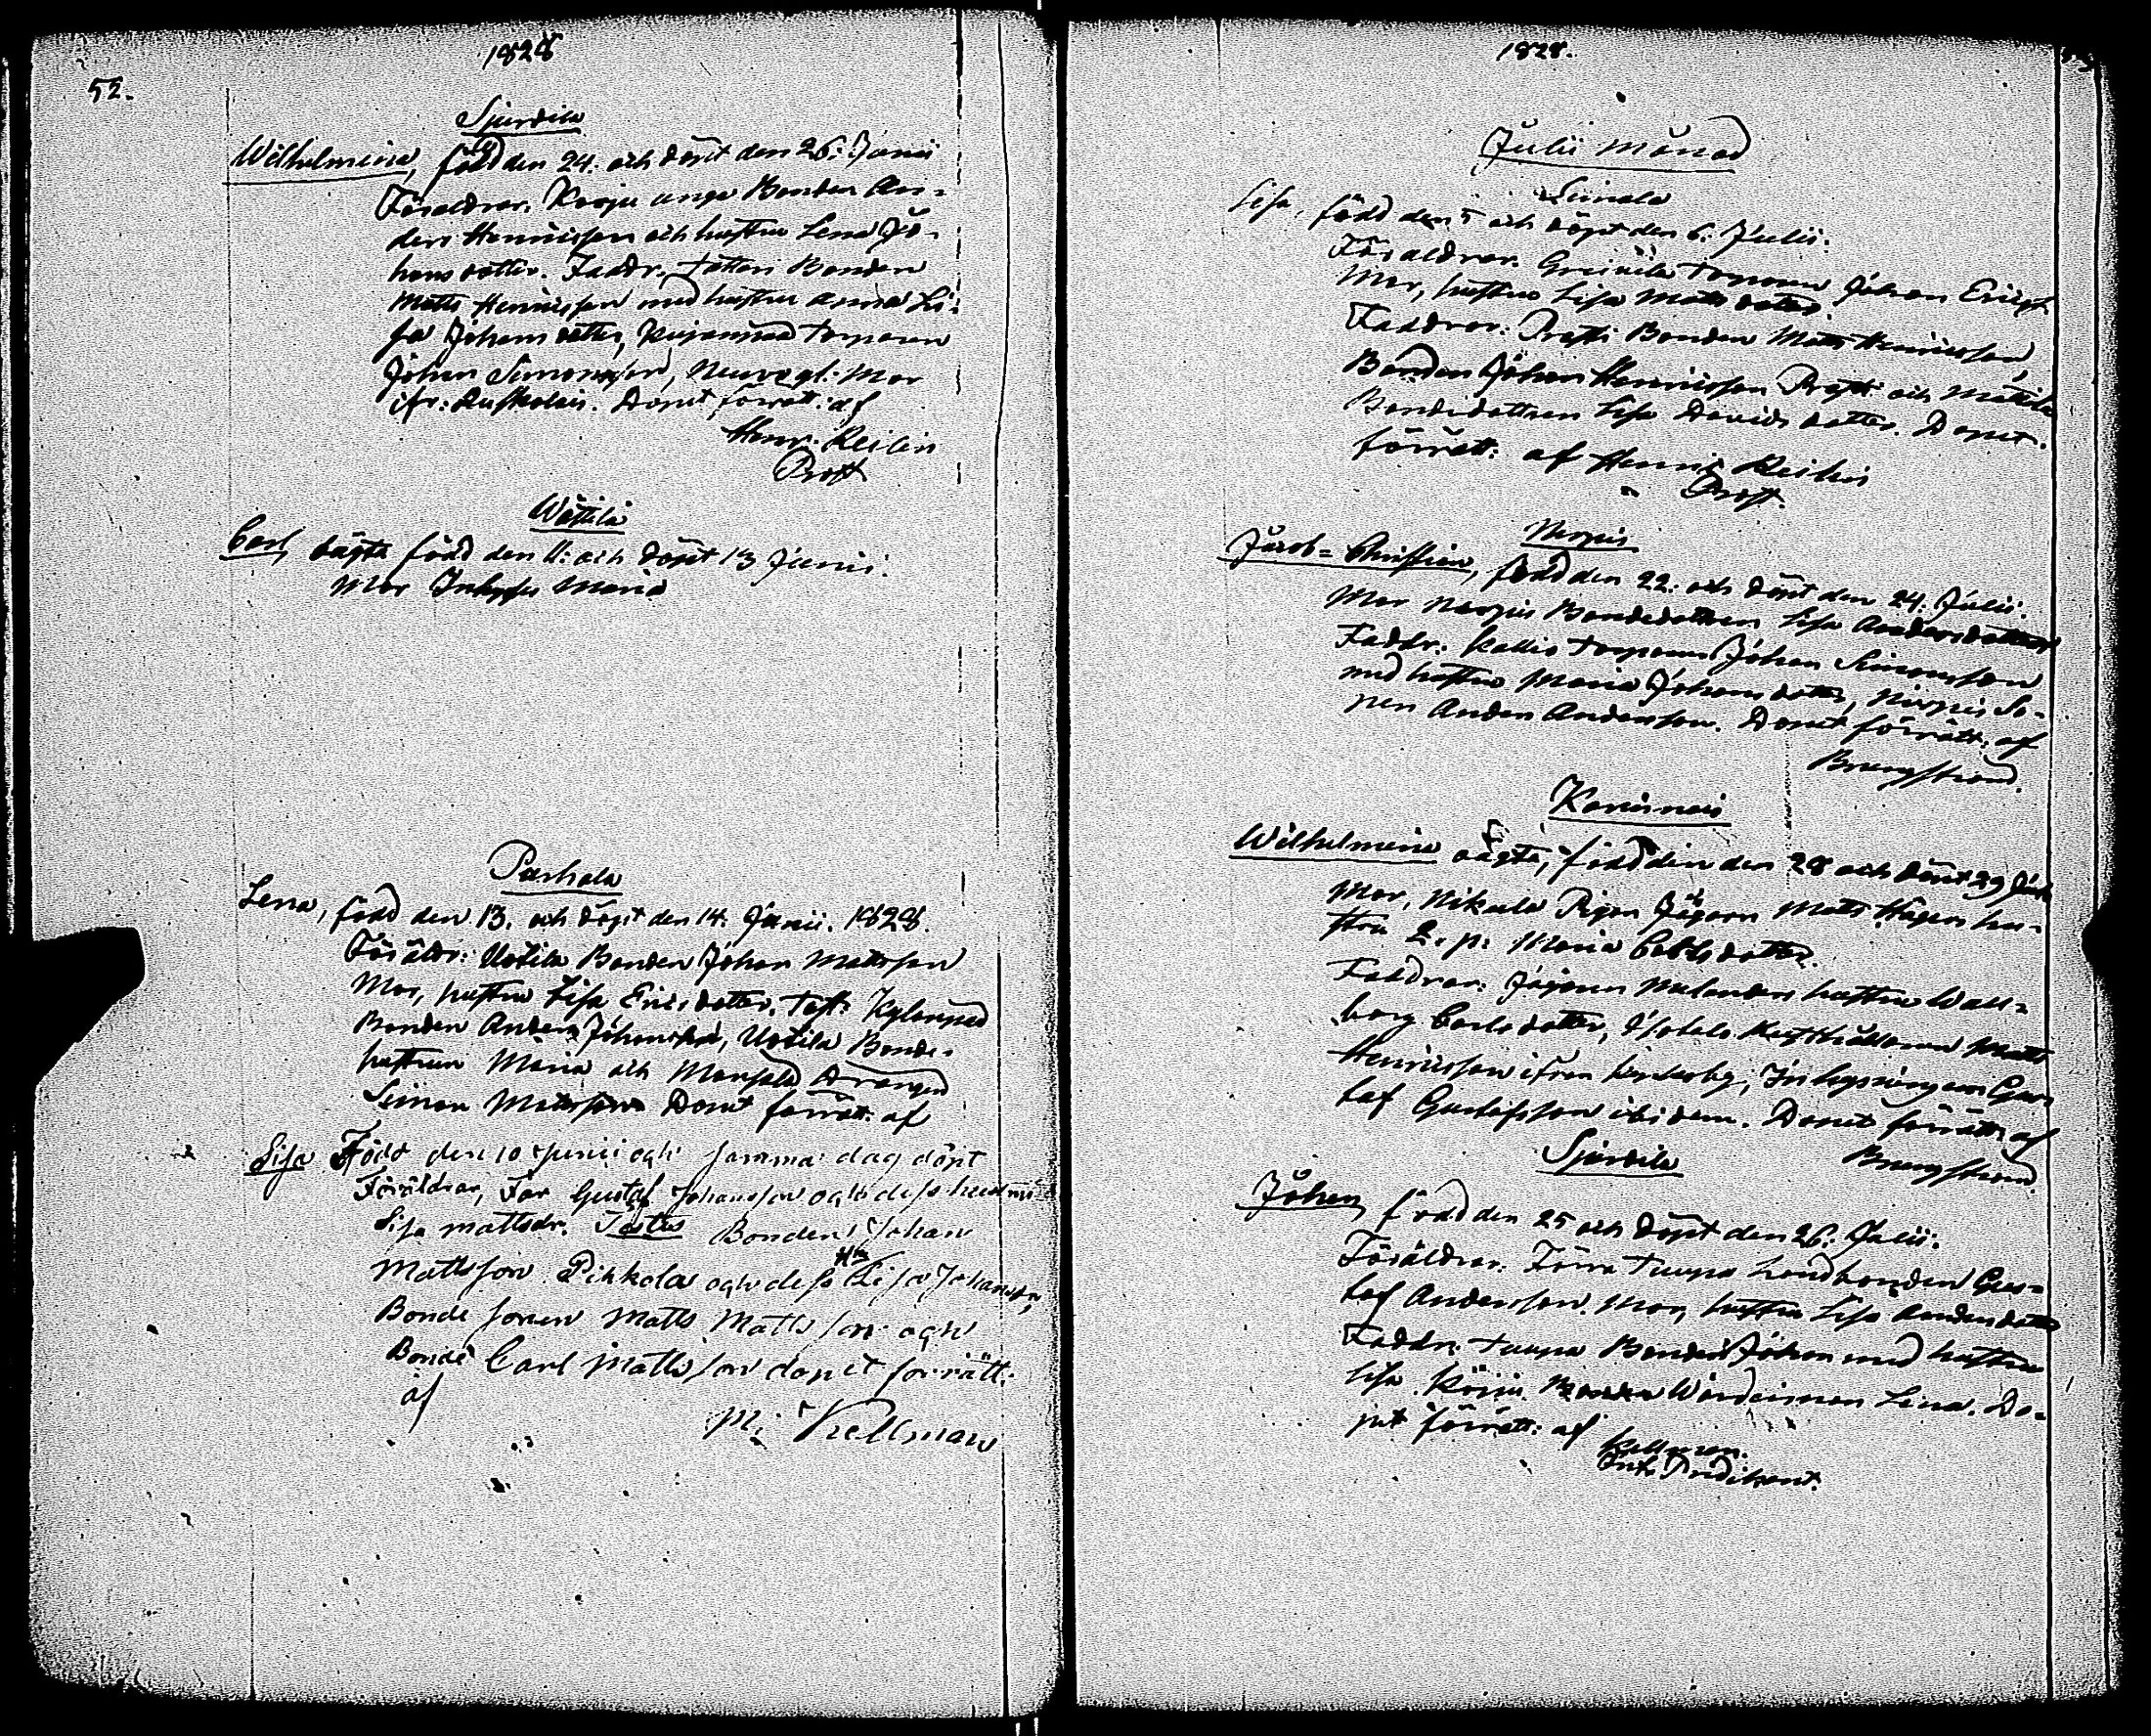 1828
52.
Sjurdila
Wilhelmina, född den 24. och döpt den 26: Junii
Föraldrar. Korju unge Bonden An-
ders Henricsson och hustru Lena Jo-
hans dotter. Faddr. Bonden
Matts Henricsson med hustru Anna Li-
sa Johans dotter, torparen
Johan Simonsson,
ifr: Dopet förrätt: af
Henr. Reilin
Prost
Wättilä
Carl, oägta född den 11: och döpt 13 Junii.
Mor Inhyses Maria
Parhala
Lena, född den 13. och döpt den 14. Junii. 1828.
Föräldr: Uotila Bonden Johan Mattsson
Mor, hustru Lisa Ericsdotter. Test:
Bonden Anders Johansson, Uotila Bonde-
hustrun Maria och Drängen
Simon Mattsson Dopet förrätt: af
Lisa Född den 10 Junii och samma dag döpt
Föräldrar, Far Gustaf Johansson och dess hustru
Lisa mattsdr. Testes Bonden Johan
Mattsson Pihkola och dess Hu Lisa Johansdr,
Bonde sonen Matts Mattsson och
Bonde Carl Mattsson dopet forrätt:
af
M: Kellman
1828.
Julii månad
Lisa, född den 5 och döpt den 6. Julii.
Föraldrar. torparen Johan Ericss.
Mor, hustru Lisa Matts dotter.
Faddrar: Bonden Matts Henricsson,
Bonden Johan Henricsson och Mattila
Bondedottren Lisa Davids dotter. Dopet
förrätt: af Henric Reilin
Prost.
Jacob=Christian, född den 22. och döpt den 24. Julii.
Mor Bondedottren Lisa Andersdotter
Faddr. Kallio torparen Johan Simonsson
med hustru Maria Johans dotter, So-
nen Anders Andersson. Dopet förrätt: af
Bergstrand.
Wilhelmina oägta, född den 28 och döpt 29 Julii
Mor, Nikula Pigan Jägarn Matts Hägers hu-
stru Maria Carlsdotter.
Faddrar: Jägaren hustru Wal-
borg Carlsdotter, Matts
Henricsson ifrån Inhysingen Gus-
taf Gustafsson ibidem. Dopet förrätt: af
Bergstrand.
Sjurdila
Johan, född den 25 och döpt den 26. Julii.
Föräldrar. Förra Tuupa landbonden Gus-
taf Andersson. Mor, hustru Lisa Andersdotter
Faddr. Tuupa Bonden Johan med hustru
Lisa. Wärdinnan Lena. Do-
pet förrätt: af
Kellman.
Predikant.